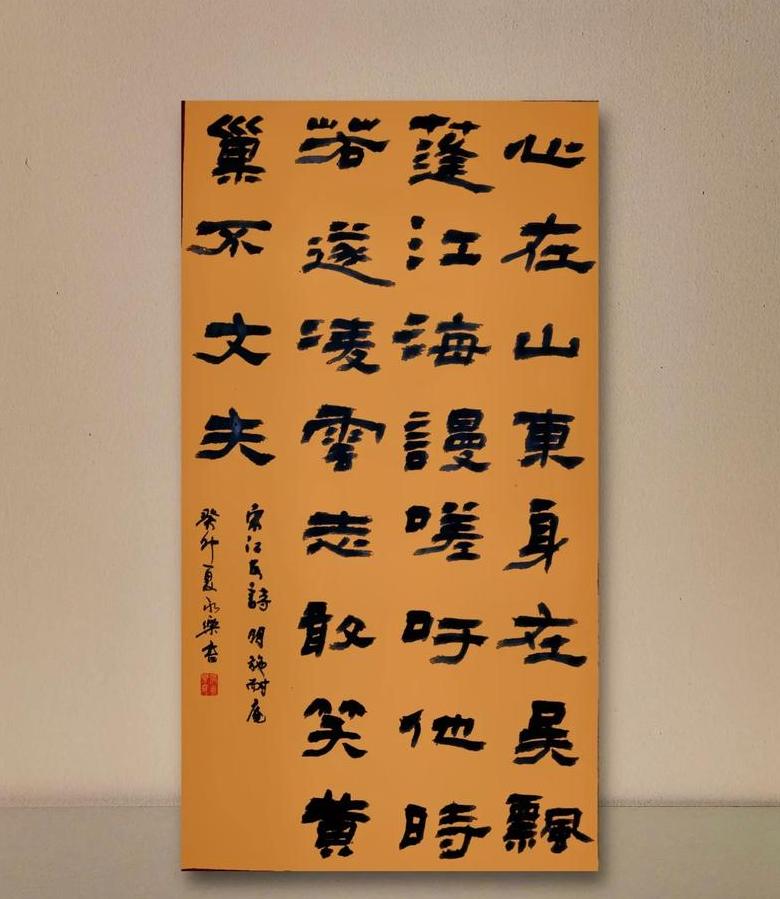 心在山東身在吳飄
蓬江海謾嗟吁他時
若遂凌雲志敢笑黄
巢不丈夫
宋江反詩 明施耐庵
癸卯夏永樂書